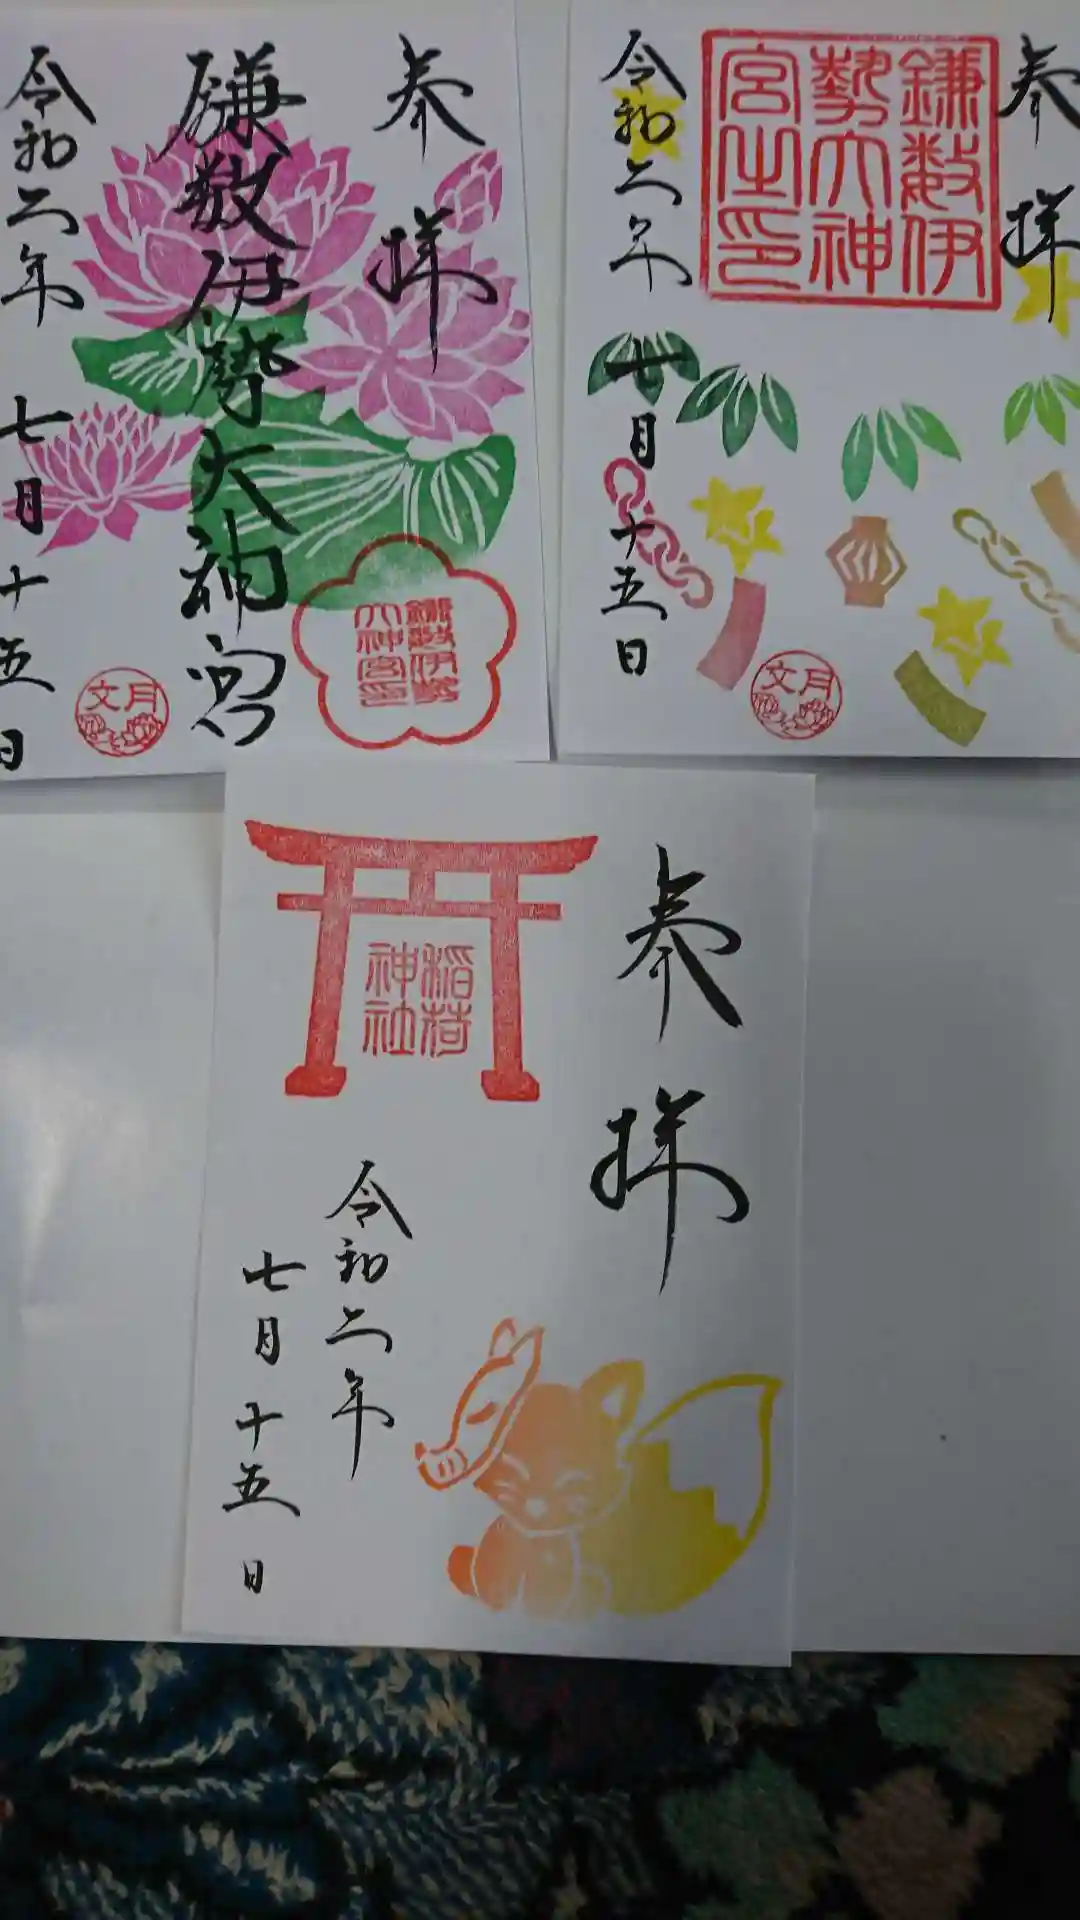 奉拝
鎌数伊勢大神宮
令和二年
七月十五日
鎌数伊勢
大神宮印
文月
奉拝
鎌数伊
勢大神
宮之印
令和二年
七月十五日
文月
奉拝
稲荷
神社
令和二年
七月十五日